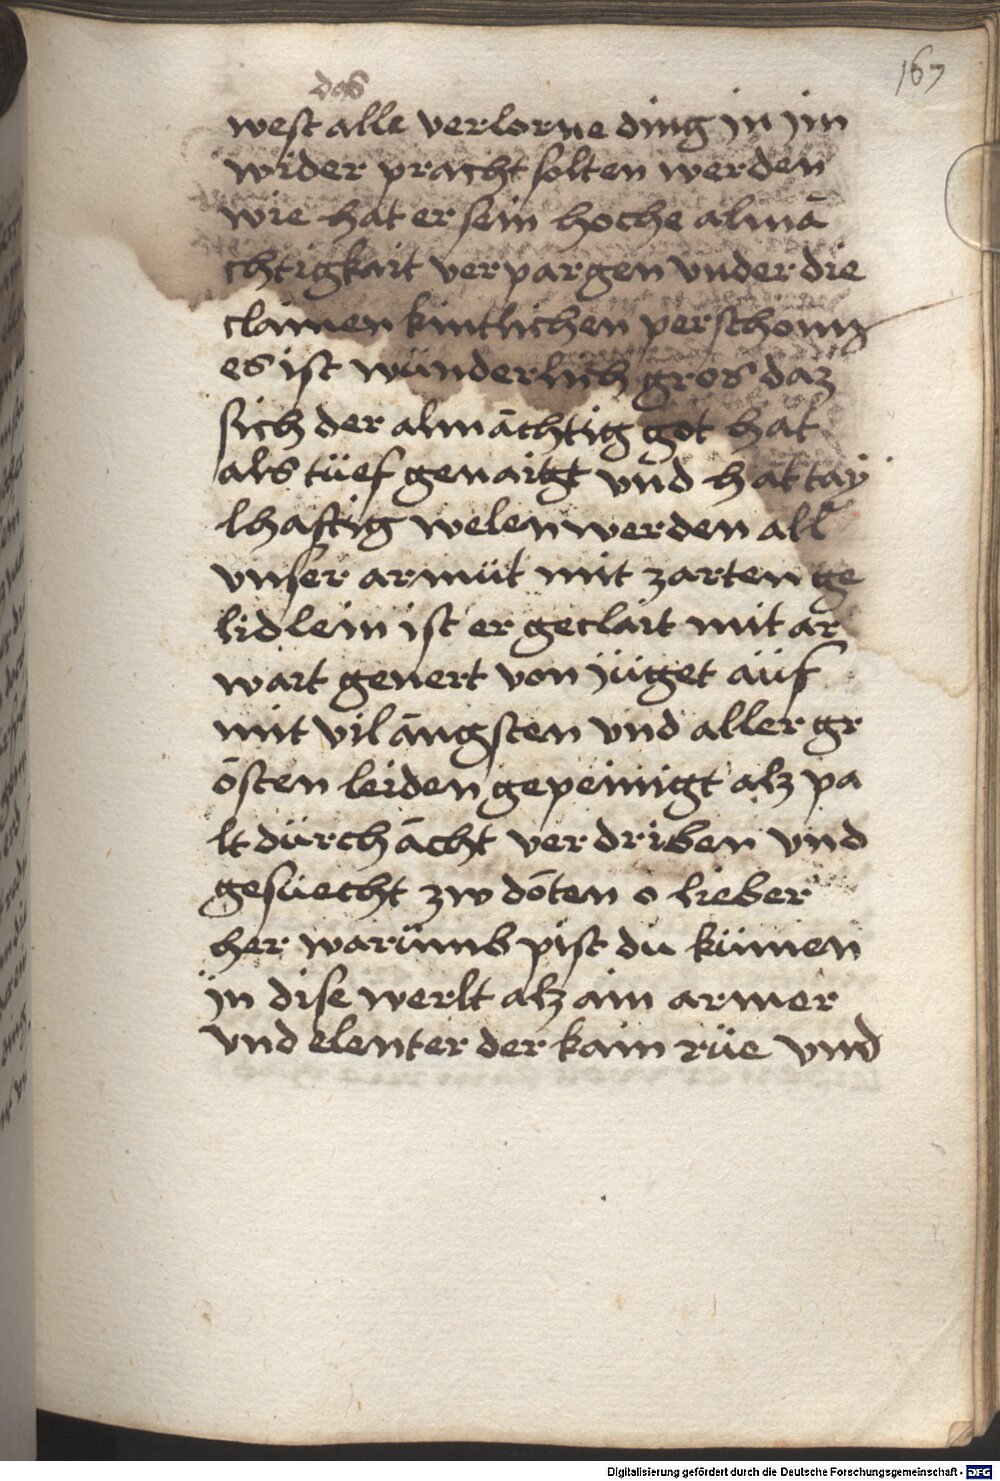 167
das
west alle verlorne ding in im
wider pracht solten werden
wie hat er sein hoche almä
chtigkait verpargen vnder die
clainen kintlichen perschonn
es ist wunderlich gros daz
sich der almächtig got hat
als tüef genaigt vnd hat tay
lhaftig welen werden all
vnser armüt mit zarten ge
lidlein ist er geclait mit ar
wart genert von jüget aüf
mit vil ängsten vnd aller gr
östen leiden gepeinigt alz pa
lt dürch ächt verdriben vnd
gesüecht zw döten o lieber
her warümb pist du kümen
in dise werlt alz ain armer
vnd elenter der kain rüe vnd
Digitalisierung gefördert durch die Deutsche Forschungsgemeinschaft - DFG